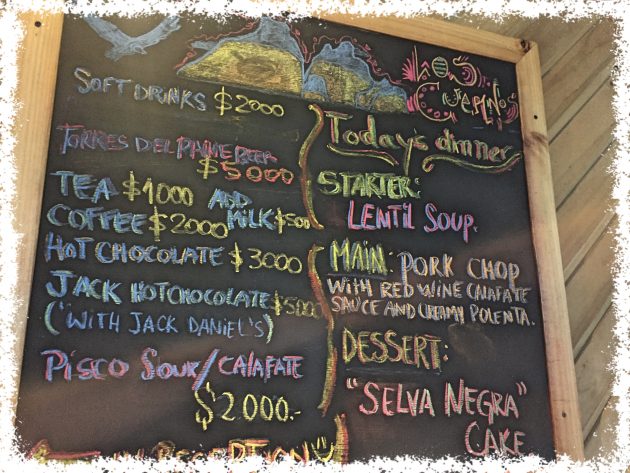 Los Cuernos
SOFT DRINKS $2000
TORRES DEL PAINE BEER
$5000
TEA $1000 ADD
COFFEE $2000 MILK $500
HOT CHOCOLATE $3000
JACK HOTCHOCOLATE $5000
("WITH JACK DANIEL'S)
PISCO SOUR/CALAFATE
$2000.-
RECEPTION
Today's dinner
STARTER:
LENTIL SOUP.
MAIN: PORK CHOP
WITH RED WINE CALAFATE
SAUCE AND CREAMY POLENTA.
DESSERT:
"SELVA NEGRA"
CAKE